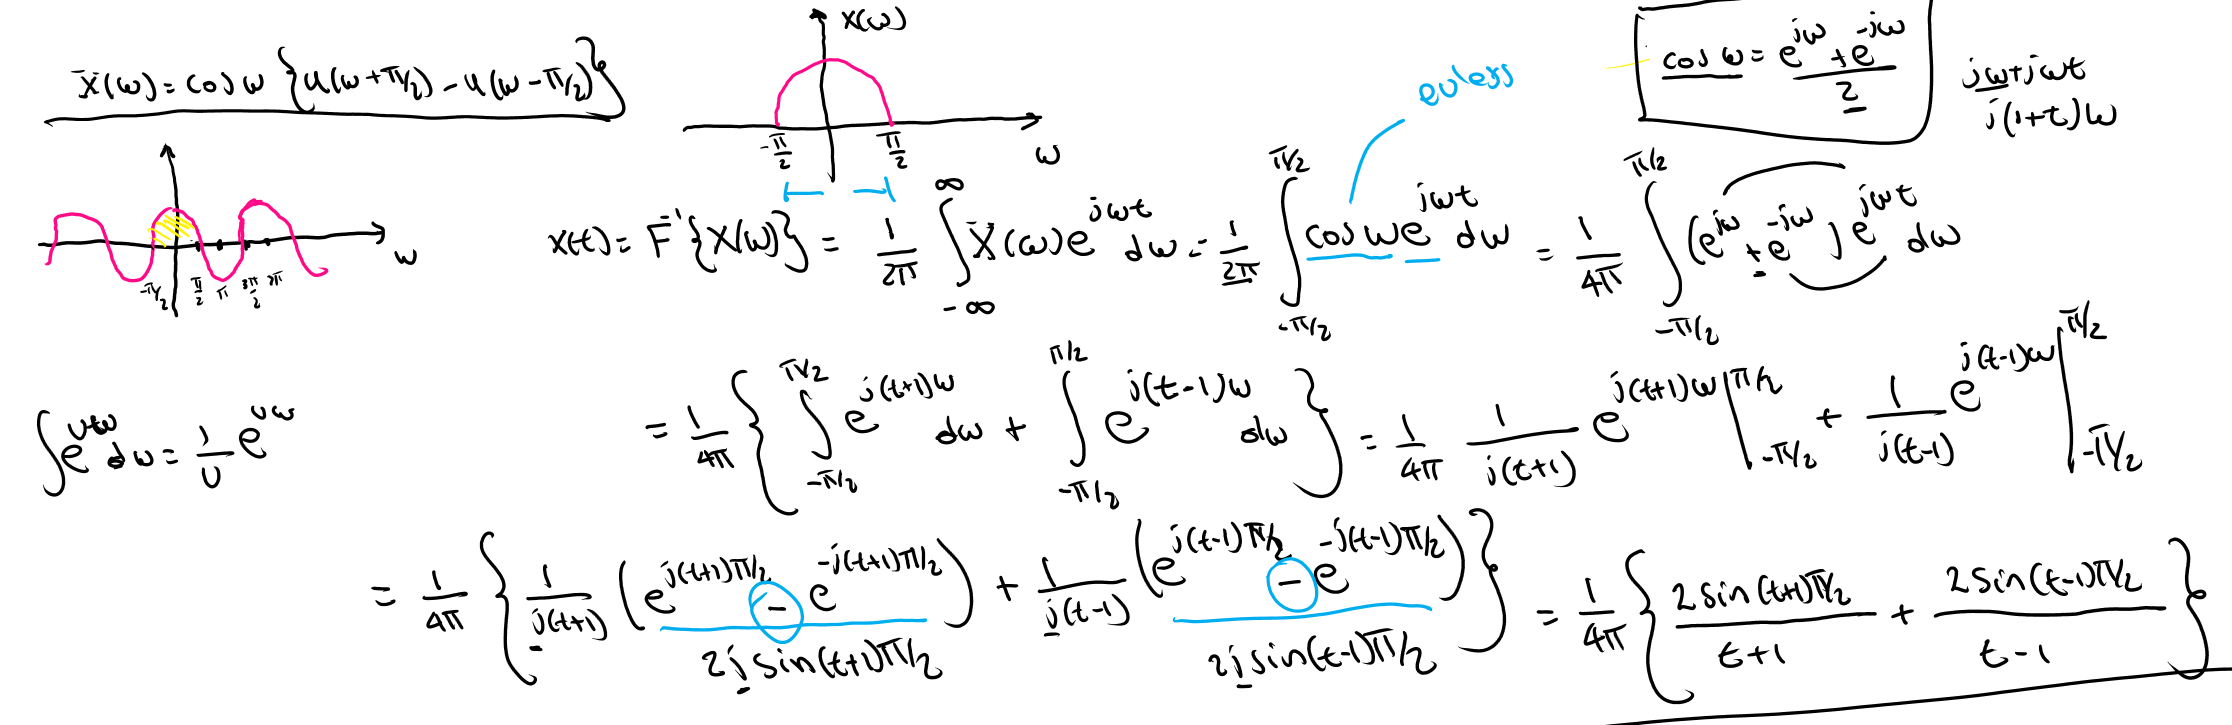 X(ω) = cos ω {u(ω+π/2) - u(ω-π/2)}
X(ω)
-π/2 π/2 ω
cos ω = (e^{jω} + e^{-jω})/2
jω+jωt
j(1+t)ω
euless
-π/2 π/2 π 3π/2 2π ω
x(t) = F^{-1}{X(ω)} = 1/2π ∫_{-∞}^{∞} X(ω)e^{jωt} dω = 1/2π ∫_{-π/2}^{π/2} cos ω e^{jωt} dω = 1/4π ∫_{-π/2}^{π/2} (e^{jω} + e^{-jω}) e^{jωt} dω
∫e^{uω} dω = 1/u e^{uω}
= 1/4π { ∫_{-π/2}^{π/2} e^{j(t+1)ω} dω + ∫_{-π/2}^{π/2} e^{j(t-1)ω} dω } = 1/4π 1/j(t+1) e^{j(t+1)ω} |_{-π/2}^{π/2} + 1/j(t-1) e^{j(t-1)ω} |_{-π/2}^{π/2}
= 1/4π { 1/j(t+1) (e^{j(t+1)π/2} - e^{-j(t+1)π/2}) + 1/j(t-1) (e^{j(t-1)π/2} - e^{-j(t-1)π/2}) } = 1/4π { 2sin(t+1)π/2 / t+1 + 2sin(t-1)π/2 / t-1 }
2j sin(t+1)π/2 2j sin(t-1)π/2